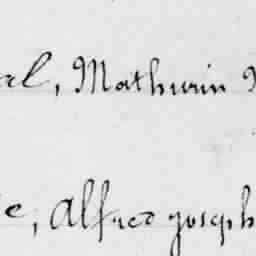 al, Mathurin
e, Alfred joseph